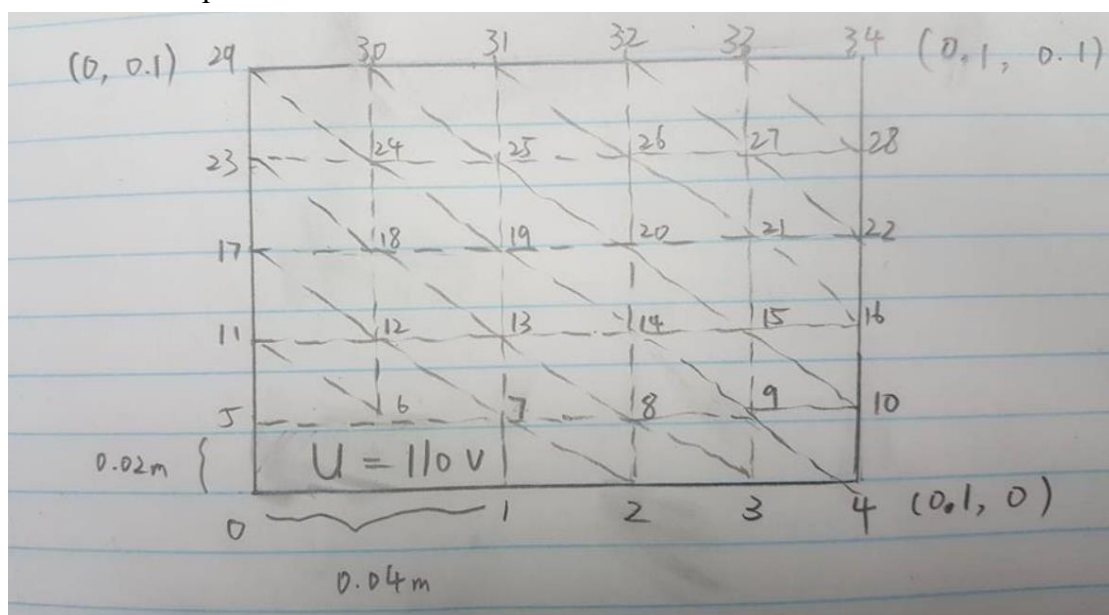 30 31 32 33 34 (0.1, 0.1)
(0, 0.1) 29
23 24 25 26 27 28
17 18 19 20 21 22
11 12 13 14 15 16
5 6 7 8 9 10
0.02m { U = 110 V
0 1 2 3 4 (0.1, 0)
0.04m